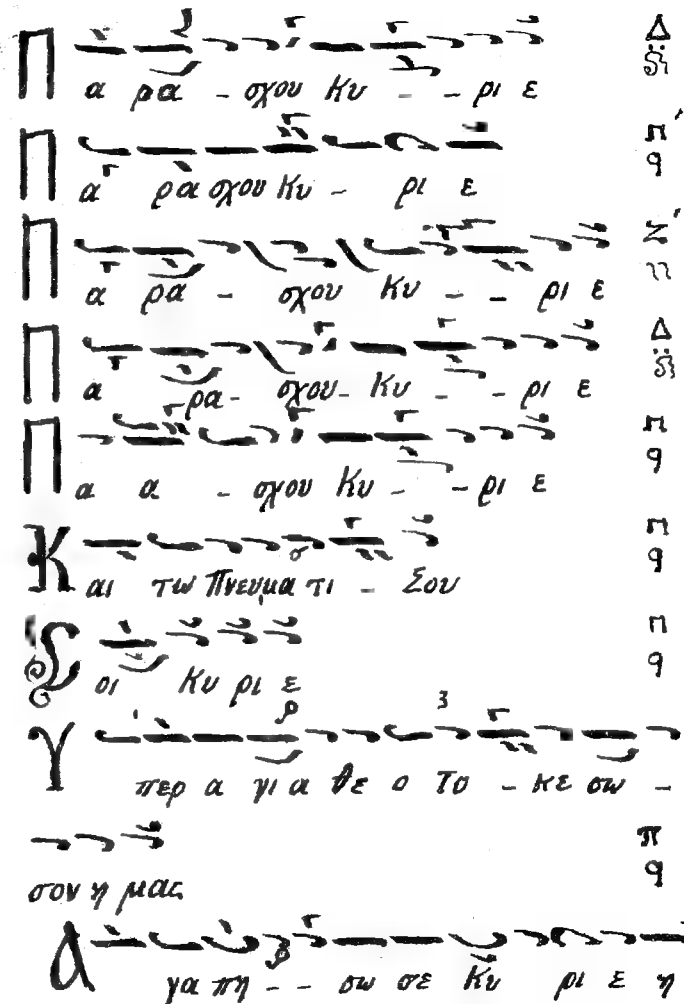 Πα ρα - σχου Κυ - - ρι ε Δ
Πα ρα σχου Κυ - ρι ε π' q
Πα ρα - σχου Κυ - - ρι ε Ζ'
Πα ρα - σχου - Κυ - - ρι ε Δ
Πα α - σχου Κυ - - ρι ε π q
Και τω Πνευματι - Σου π q
Σοι Κυ ρι ε π q
Υπερ α γι α θε ο το - κε σω -
σον η μας π q
Αγα πη - - σω σε Κυ ρι ε η